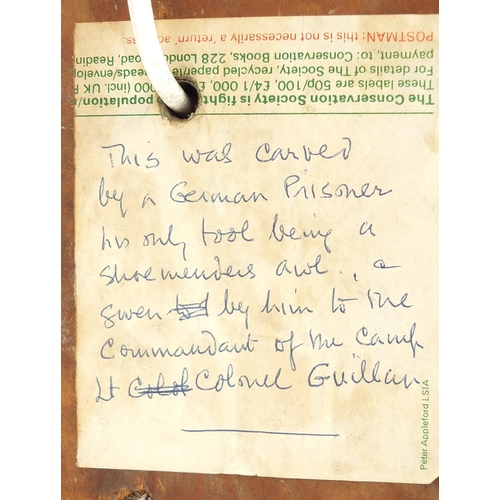 POSTMAN: this is not necessarily a 'return' address.
payment, to: Conservation Books, 228 London Road, Reading
For details of The Society, recycled paper/letterheads/envelop
These labels are 50p/100, £4/1 000, 000 (incl. UK
The Conservation Society is fighting population
This was carved
by a German Prisoner
his only tool being a
shoemenders awl., &
given by him to the
Commandant of the Camp
Lt Colonel Guillan
Peter Appleford LSIA